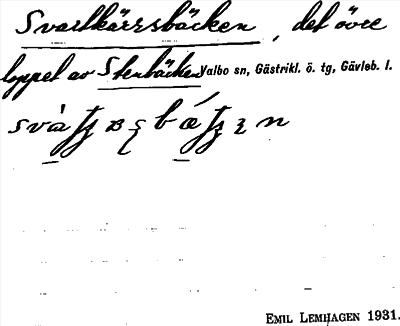 Svartkärrsbäcken, det övre
loppet av Stenbäcken Valbo sn, Gästrikl. ö. tg, Gävleb. l.
EMIL LEMHAGEN 1931.